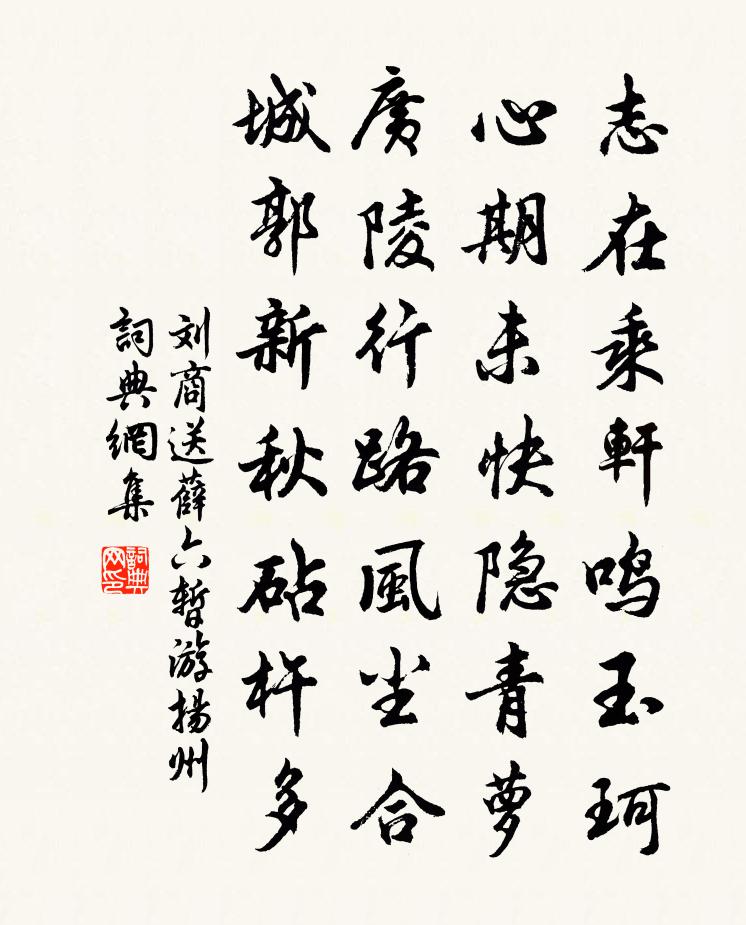 志在乘軒鸣玉珂
心期未快隐青萝
廣陵行路風尘合
城郭新秋砧杵多
刘商送薛六暫游揚州
詞典網集
詞典
网印